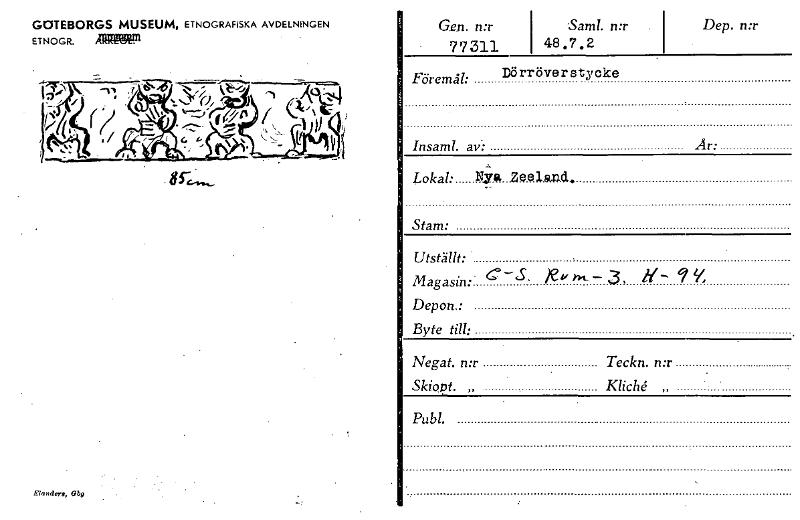 GÖTEBORGS MUSEUM, ETNOGRAFISKA AVDELNINGEN
ETNOGR.
85cm
Elanders, Gbg
Gen. n:r Saml. n:r Dep. n:r
77311 48.7.2
Föremål: Dörröverstycke
Insaml. av: År:
Lokal: Nya Zeeland.
Stam:
Utställt:
Magasin: G-S. Rum-3. H-94.
Depon.:
Byte till:
Negat. n:r Teckn. n:r
Skiopt. „ Kliché „
Publ.